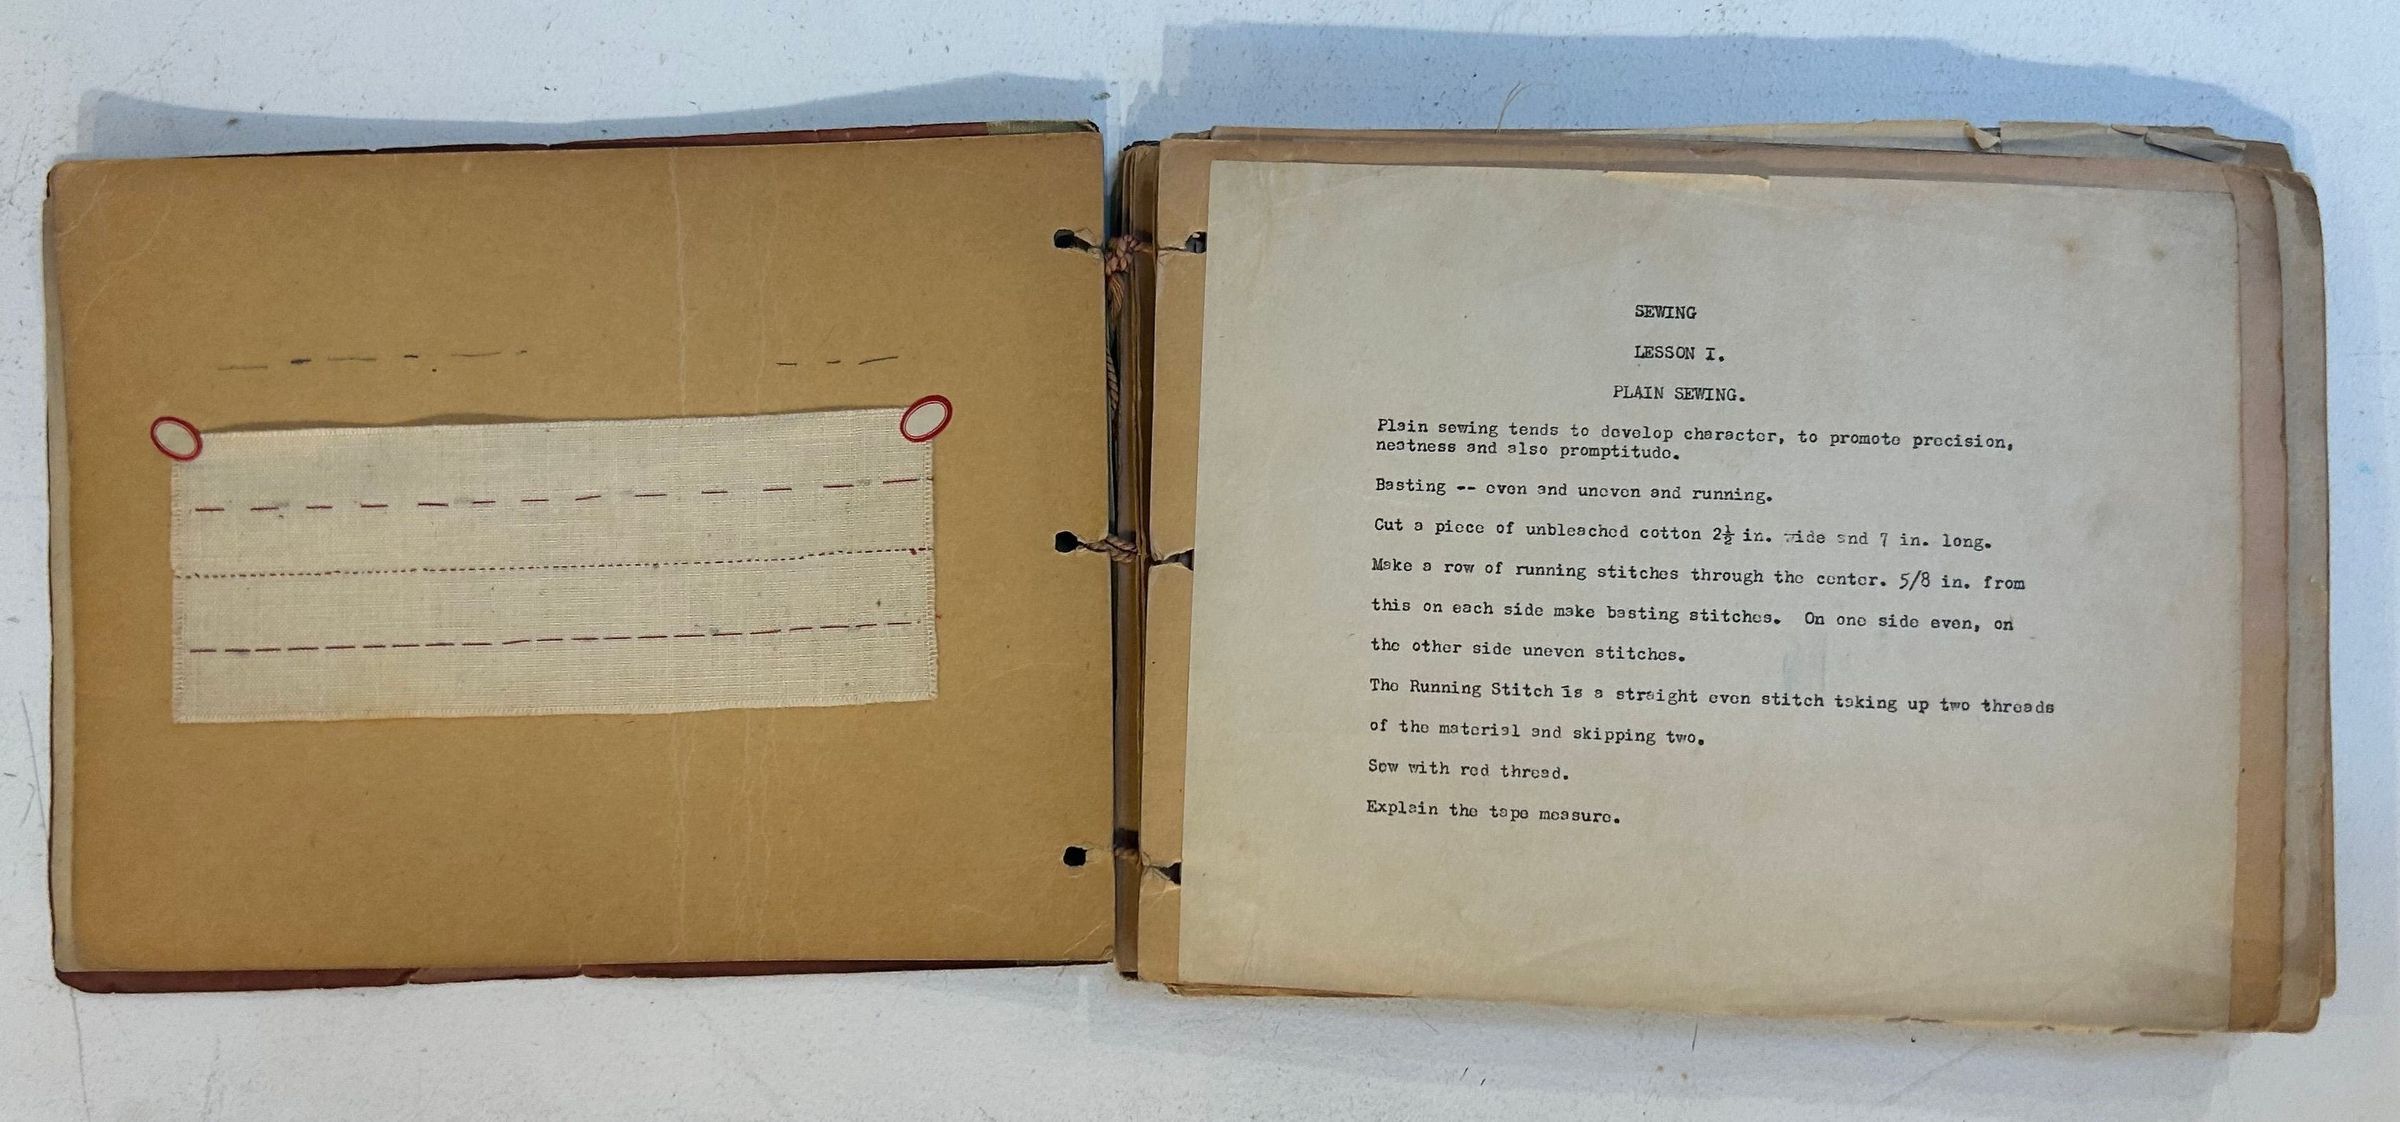 SEWING
LESSON I.
PLAIN SEWING.
Plain sewing tends to develop character, to promote precision,
neatness and also promptitude.
Basting -- even and uneven and running.
Cut a piece of unbleached cotton 2½ in. wide and 7 in. long.
Make a row of running stitches through the center. 5/8 in. from
this on each side make basting stitches. On one side even, on
the other side uneven stitches.
The Running Stitch is a straight even stitch taking up two threads
of the material and skipping two.
Sew with red thread.
Explain the tape measure.